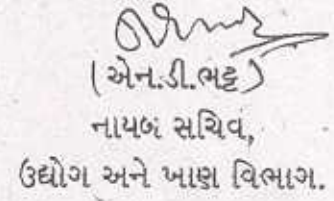 (એન.ડી.ભટ્ટ)
નાયબ સચિવ,
ઉદ્યોગ અને ખાણ વિભાગ.